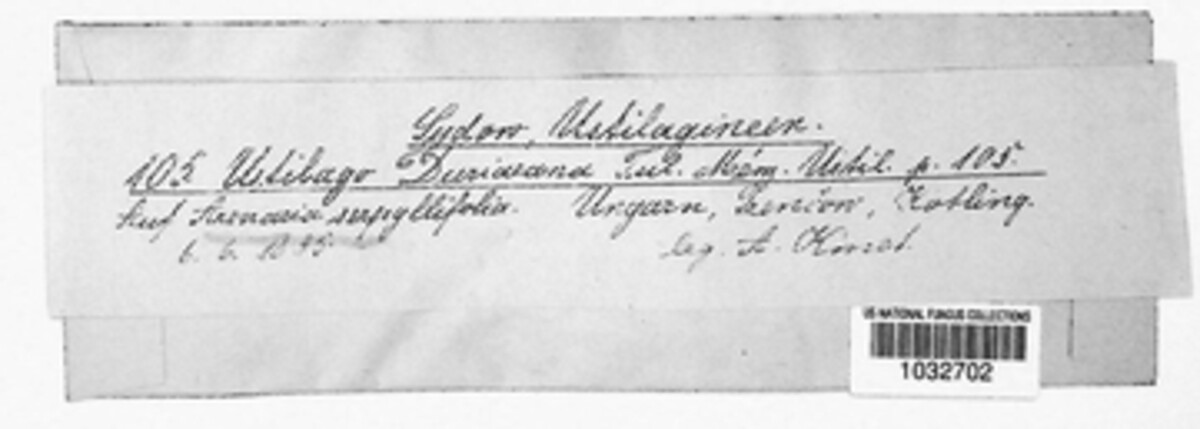 Sydow, Ustilagineen.
105. Ustilago Duriaeana Tul. Mém. Ustil. p. 105.
Auf Arenaria serpyllifolia. Ungarn, Trencsin,
6. 6. 1895 leg. A. Kmet.
US NATIONAL FUNGUS COLLECTIONS
1032702